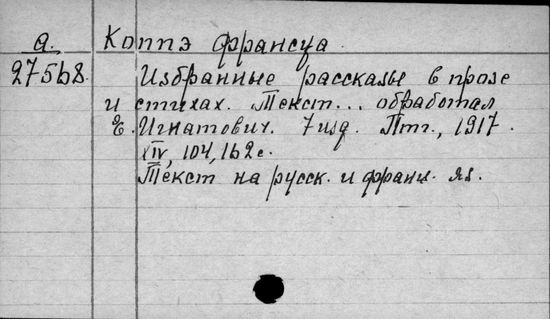 а. Коппэ Франсуа.
27568. Избранные рассказы в прозе
и стихах. Текст... обработал
Е. Игнатович. 7 изд. Птг., 1917.
XIV, 104, 162 с.
Текст на русск. и франц. яз.